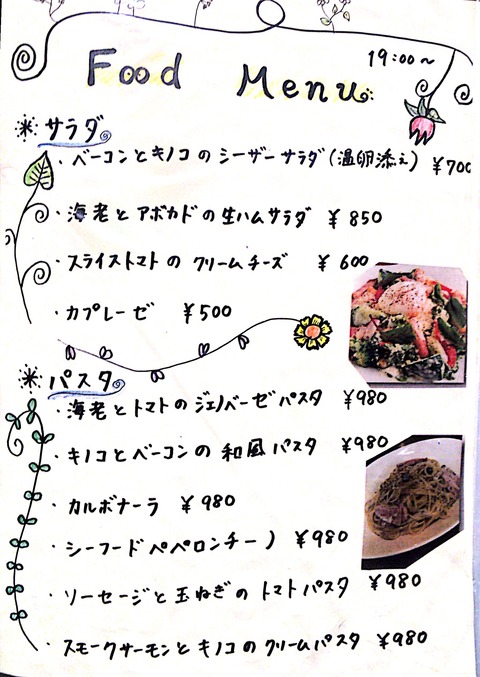 19:00～
Food Menu
サラダ
・ベーコンとキノコのシーザーサラダ(温卵添え) ¥700
・海老とアボカドの生ハムサラダ ¥850
・スライストマトのクリームチーズ ¥600
・カプレーゼ ¥500
パスタ
・海老とトマトのジェノベーゼパスタ ¥980
・キノコとベーコンの和風パスタ ¥980
・カルボナーラ ¥980
・シーフードペペロンチーノ ¥980
・ソーセージと玉ねぎのトマトパスタ ¥980
・スモークサーモンとキノコのクリームパスタ ¥980